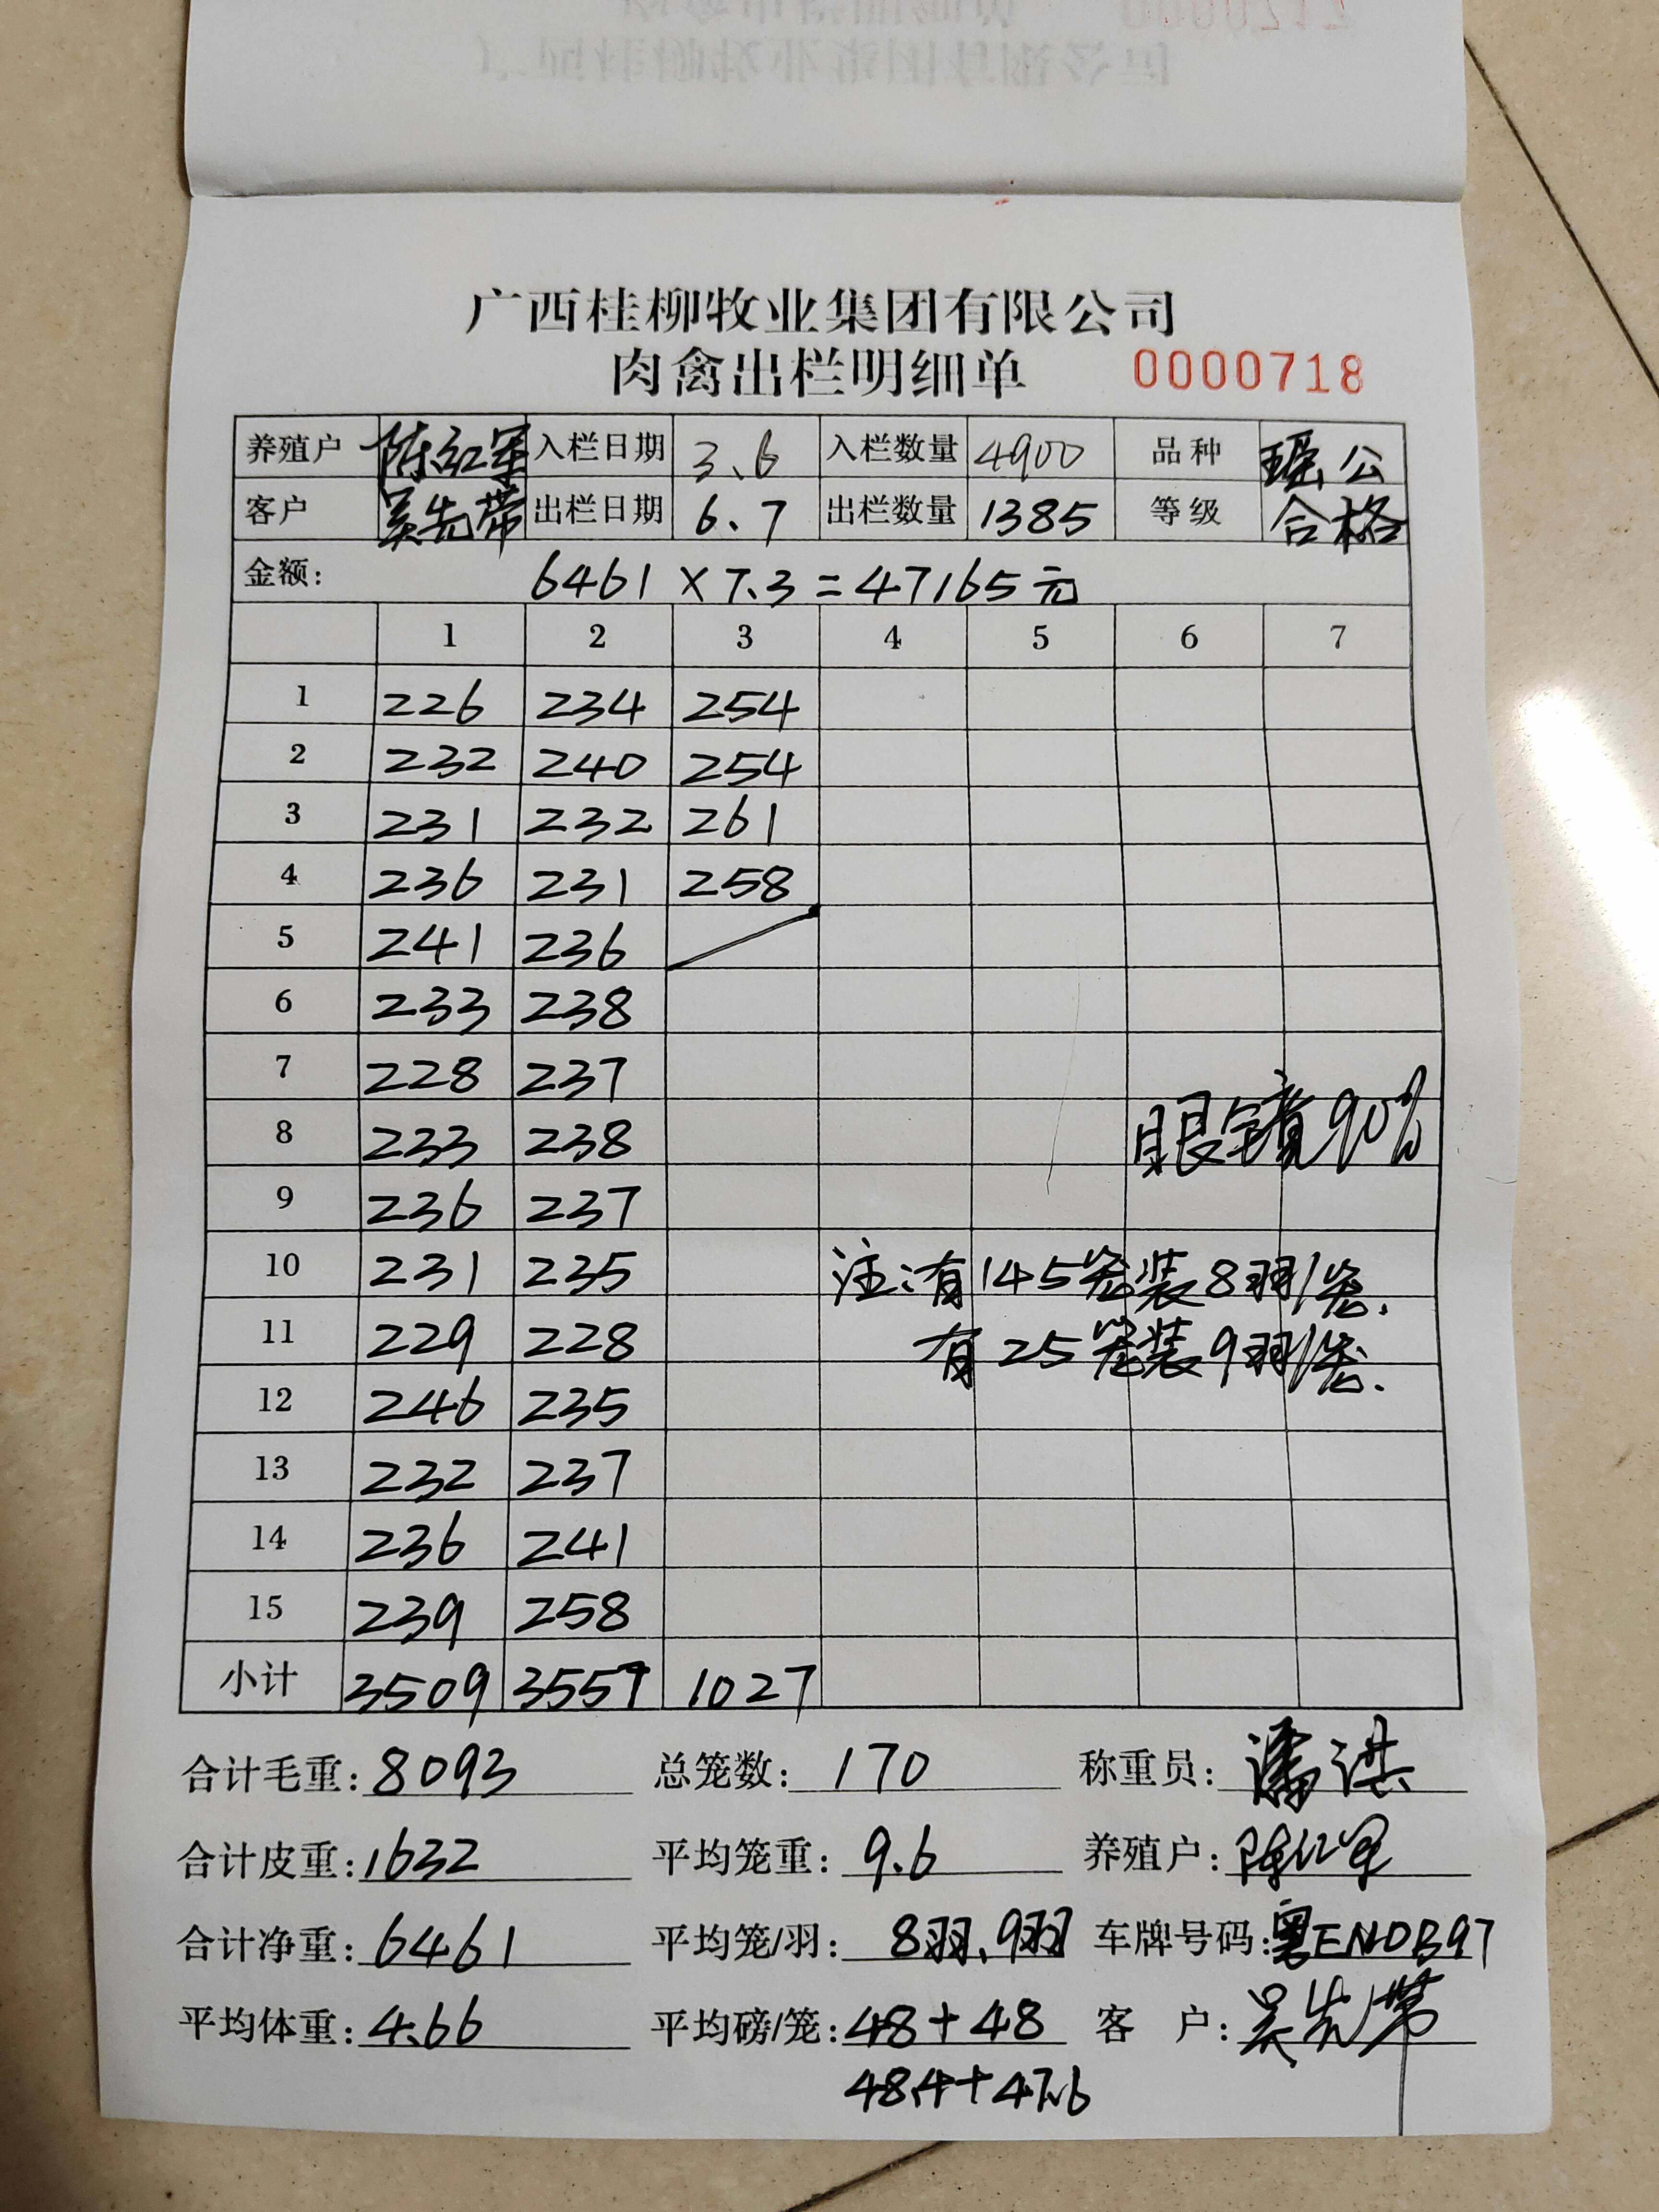 广西桂柳牧业集团有限公司
肉禽出栏明细单 0000718
养殖户 陈红军 入栏日期 3.6 入栏数量 4900 品种 瑶公
客户 吴先带 出栏日期 6.7 出栏数量 1385 等级 合格
金额: 6461×7.3=47165元
1 2 3 4 5 6 7
1 226 234 254
2 232 240 254
3 231 232 261
4 236 231 258
5 241 236
6 233 238
7 228 237
8 233 238 眼镜90%
9 236 237
10 231 235 注:有145笼装8羽/笼.
11 229 228 有25笼装9羽/笼.
12 246 235
13 232 237
14 236 241
15 239 258
小计 3509 3557 1027
合计毛重:8093 总笼数:170 称重员:潘洪
合计皮重:1632 平均笼重:9.6 养殖户:陈红军
合计净重:6461 平均笼/羽:8羽、9羽 车牌号码:粤EN0B97
平均体重:4.66 平均磅/笼:48+48 客户:吴先带
48.4+47.6